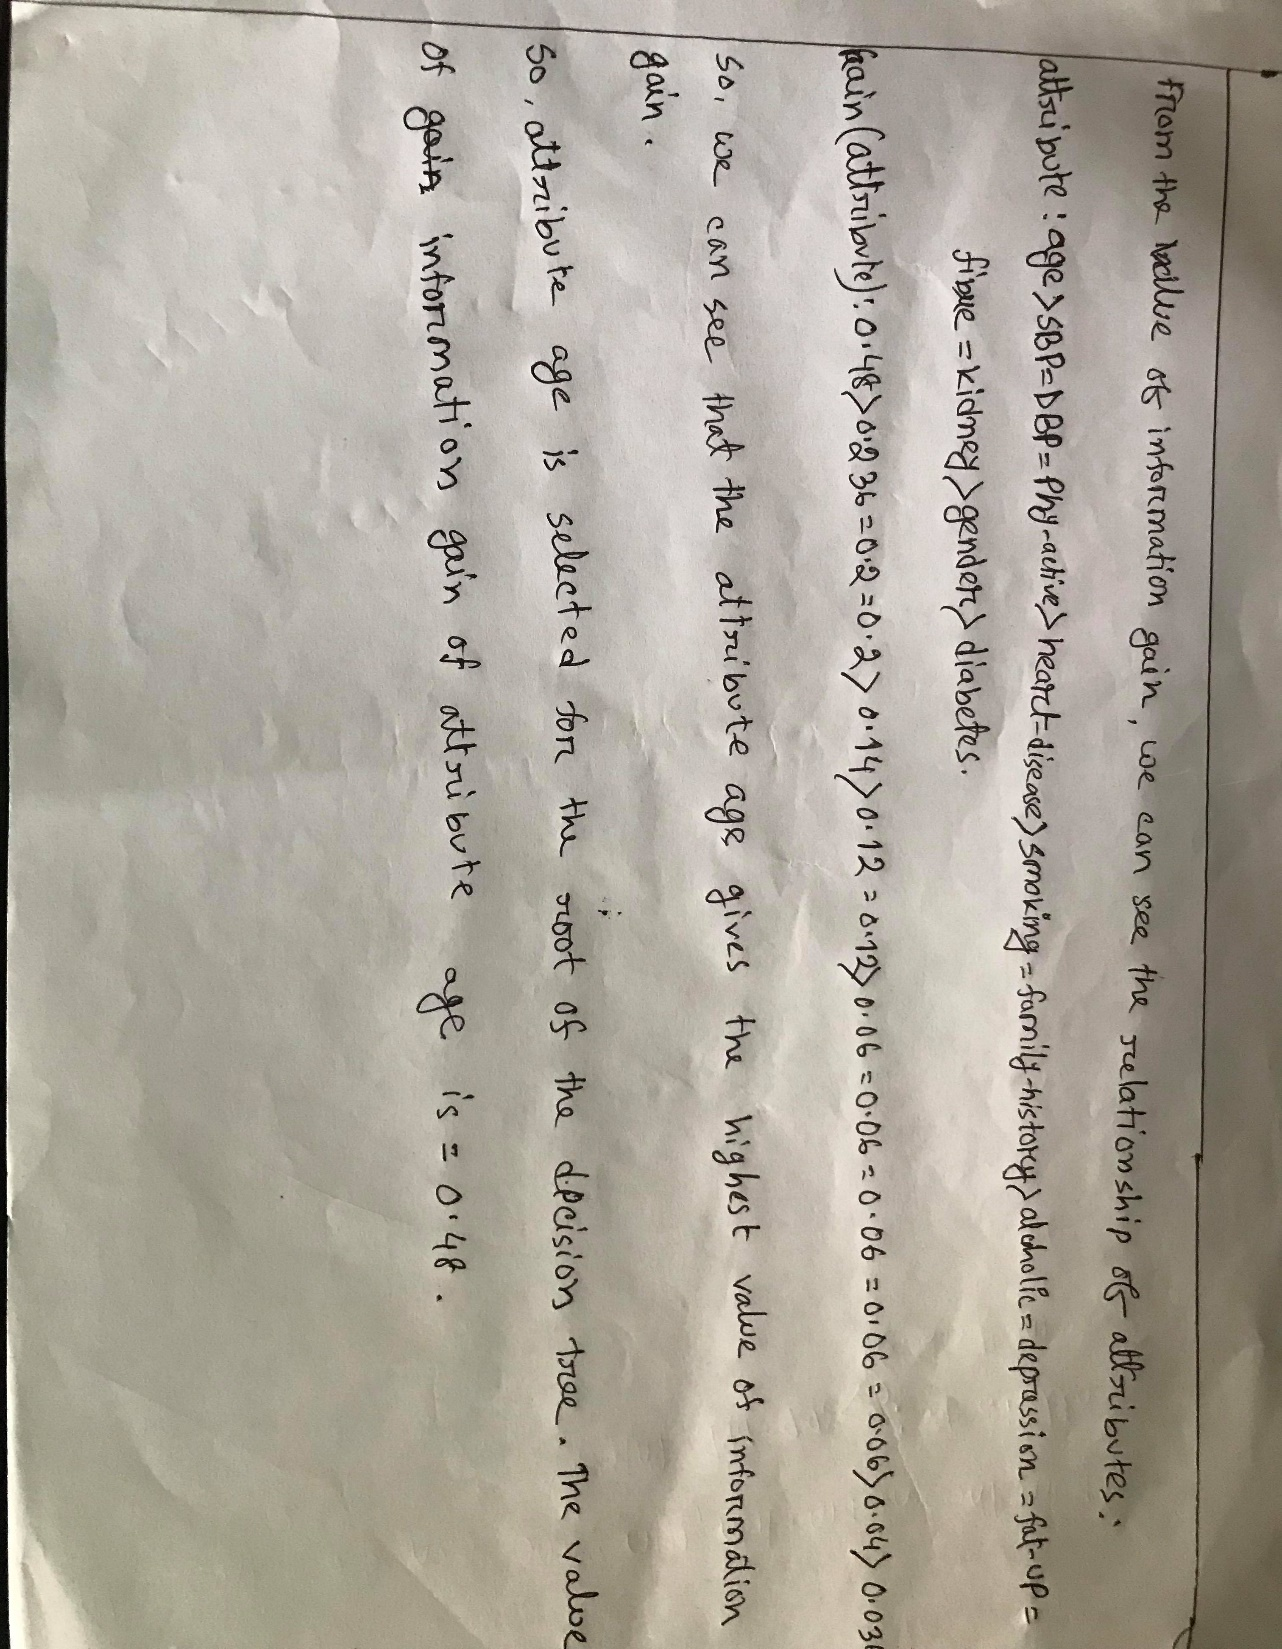 From the value of information gain, we can see the relationship of attributes:
attribute: age>SBP=DBP=Phy-active>heart-disease>smoking=family-history>alcholic=deprassion=fat-up=
fibre=kidney>gender>diabetes.
Gain(attribute): 0.48>0.236=0.2=0.2>0.14>0.12=0.12>0.06=0.06=0.06=0.06=0.06>0.04>0.036
So, we can see that the attribute age gives the highest value of information
gain.
So, attribute age is selected for the root of the decision tree. The value
of information gain of attribute age is = 0.48.